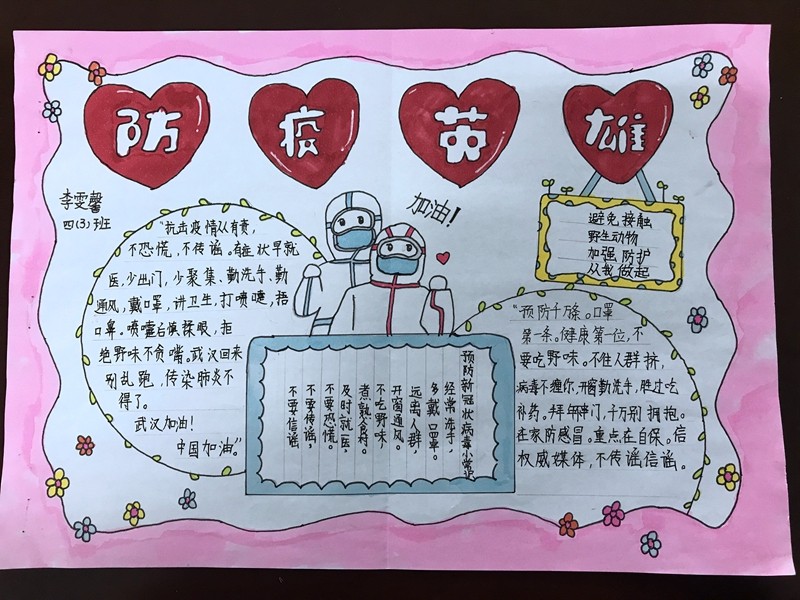 防疫英雄
李雯馨
四(3)班
"抗击疫情从有责,
不恐慌,不传谣。有症状早就
医,少出门,少聚集、勤洗手、勤
通风,戴口罩,讲卫生,打喷嚏,捂
口鼻。喷嚏后慎揉眼,拒
绝野味不贪嘴。武汉回来
别乱跑,传染肺炎不
得了。
武汉加油!
中国加油。"
加油!
避免接触
野生动物
加强防护
从我做起
预防新冠状病毒小常识
经常洗手,
多戴口罩。
远出人群,
开窗通风。
不吃野味,
煮熟食材。
及时就医,
不要恐慌。
不要传谣,
不要信谣
"预防千万条。口罩
第一条。健康第一位,不
要吃野味。不往人群挤,
病毒不缠你,开窗勤洗手,胜过吃
补药。拜年 门,千万别拥抱。
在家防感冒。重点在自保。信
权威媒体,不传谣信谣。